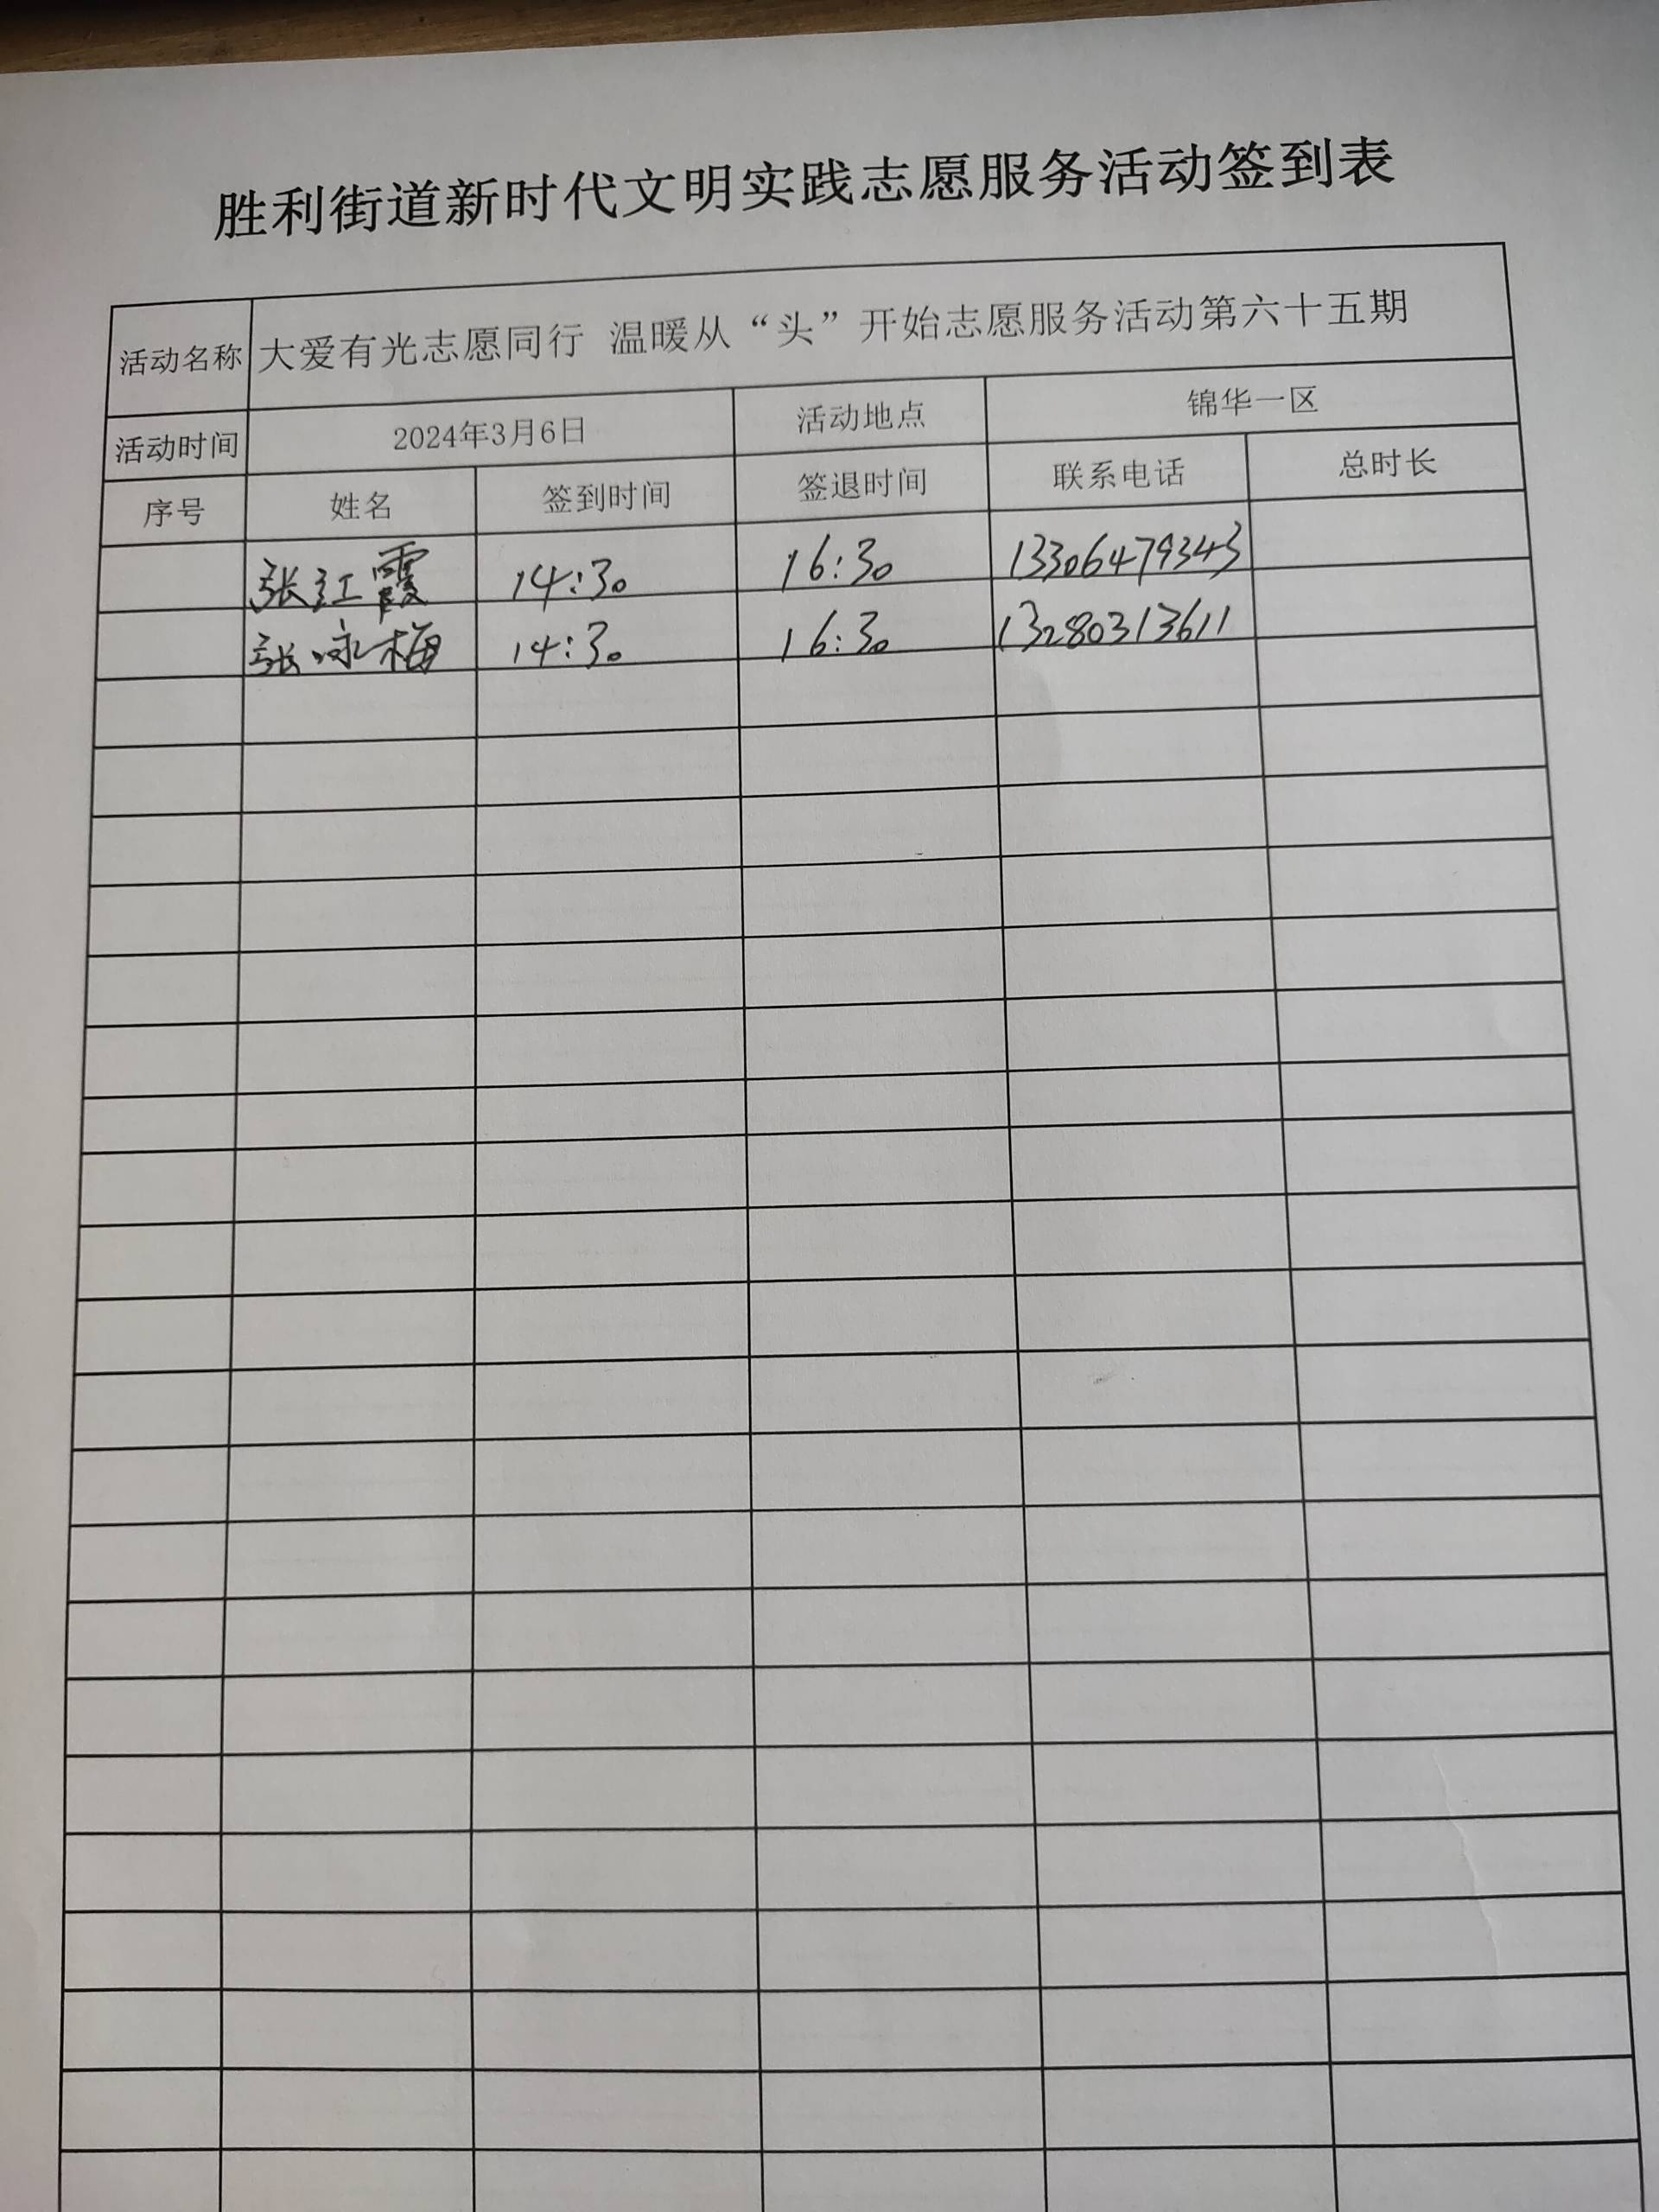 胜利街道新时代文明实践志愿服务活动签到表
活动名称 大爱有光志愿同行 温暖从“头”开始志愿服务活动第六十五期
活动时间 2024年3月6日 活动地点 锦华一区
序号 姓名 签到时间 签退时间 联系电话 总时长
张红霞 14:30 16:30 13306479343
张咏梅 14:30 16:30 13280313611